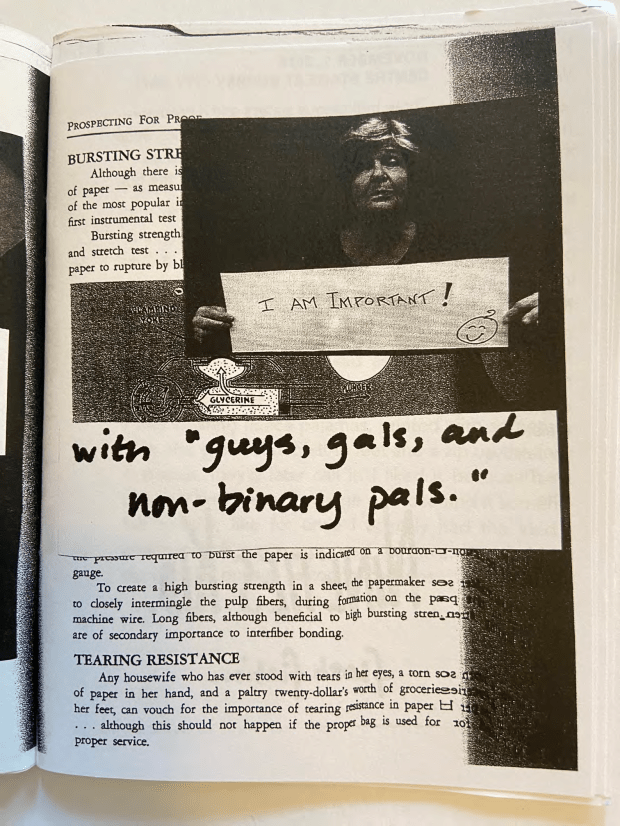 PROSPECTING FOR PROOF
BURSTING STRE
Although there is
of paper — as measu
of the most popular i
first instrumental test
Bursting strength
and stretch test . . .
paper to rupture by bl
I AM IMPORTANT!
CLAMPING
YOKE
GLYCERINE
with "guys, gals, and
non-binary pals."
the pressure required to burst the paper is indicated on a
gauge.
To create a high bursting strength in a sheet, the papermaker
to closely intermingle the pulp fibers, during formation on the
machine wire. Long fibers, although beneficial to high bursting stren
are of secondary importance to interfiber bonding.
TEARING RESISTANCE
Any housewife who has ever stood with tears in her eyes, a torn
of paper in her hand, and a paltry twenty-dollar's worth of groceries
her feet, can vouch for the importance of tearing resistance in paper
. . . although this should not happen if the proper bag is used for
proper service.